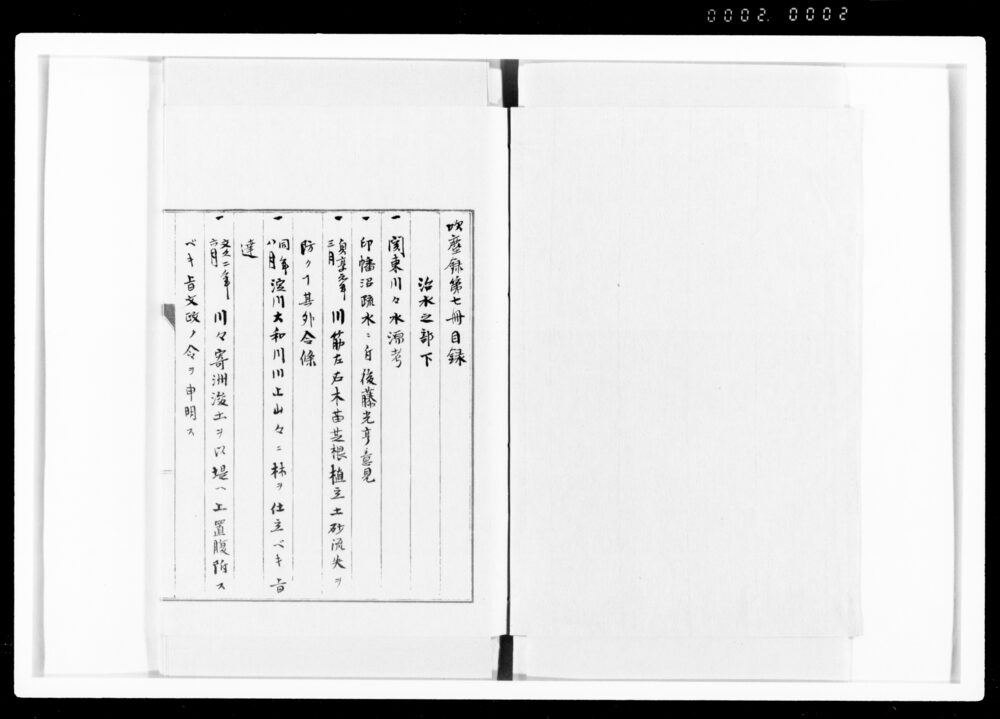 0002. 0002
吹塵録第七冊目録
治水之部下
一 関東川々水源考
一 印幡沼疏水ニ付後藤光亨意見
一 貞享元年三月 川筋左右木苗芝根植立土砂流失ヲ
防ク丁其外合條
一 同年八月 淀川大和川川上山々ニ林ヲ仕立ベキ旨
達
一 文久二年六月 川々寄洲浚土ヲ以堤ヘ上置腹附ス
ベキ旨文政ノ令ヲ申明ス